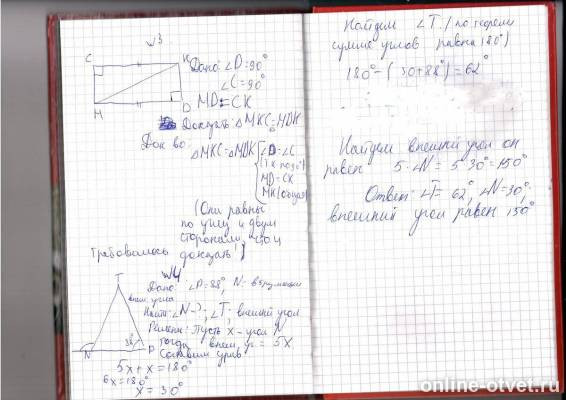 №3
С
К
М
D
Дано: ∠D=90°
∠C=90°
MD=CK
Доказать: △MKC=△MDK
Док во
△MKC=△MDK
∠D=∠C
MD=CK
MK(общая)
(Они равны
по углу и двум
сторонам, что и
требовалось доказать!)
№4
T
N
P
88°
внеш. угла
Дано: ∠P=88°, N-
Найти: ∠N-?; ∠T- внешний угол
Решение: Пусть x-угол N
тогда внеш. = 5x
Составим урав
5x+x=180°
6x=180°
x=30°
Найдем ∠T (по теореме
сумме углов равна 180°)
180°-(30+88°)=62°
Найдем внешний угол он
равен 5·∠N=5·30°=150°
Ответ: ∠T=62°, ∠N=30°,
внешний угол равен 150°
online-otvet.ru